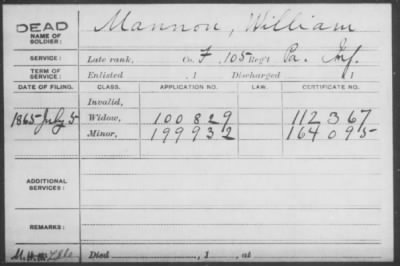 DEAD Mannon, William
NAME OF
SOLDIER:
SERVICE: Late rank, Co. F, 105 Reg't Pa. Inf.
TERM OF
SERVICE: Enlisted , 1 Discharged , 1
DATE OF FILING. CLASS. APPLICATION NO. LAW. CERTIFICATE NO.
Invalid,
1865 July 5 Widow, 100829 112367
Minor, 199932 164095
ADDITIONAL
SERVICES:
REMARKS:
Died , 1 , at